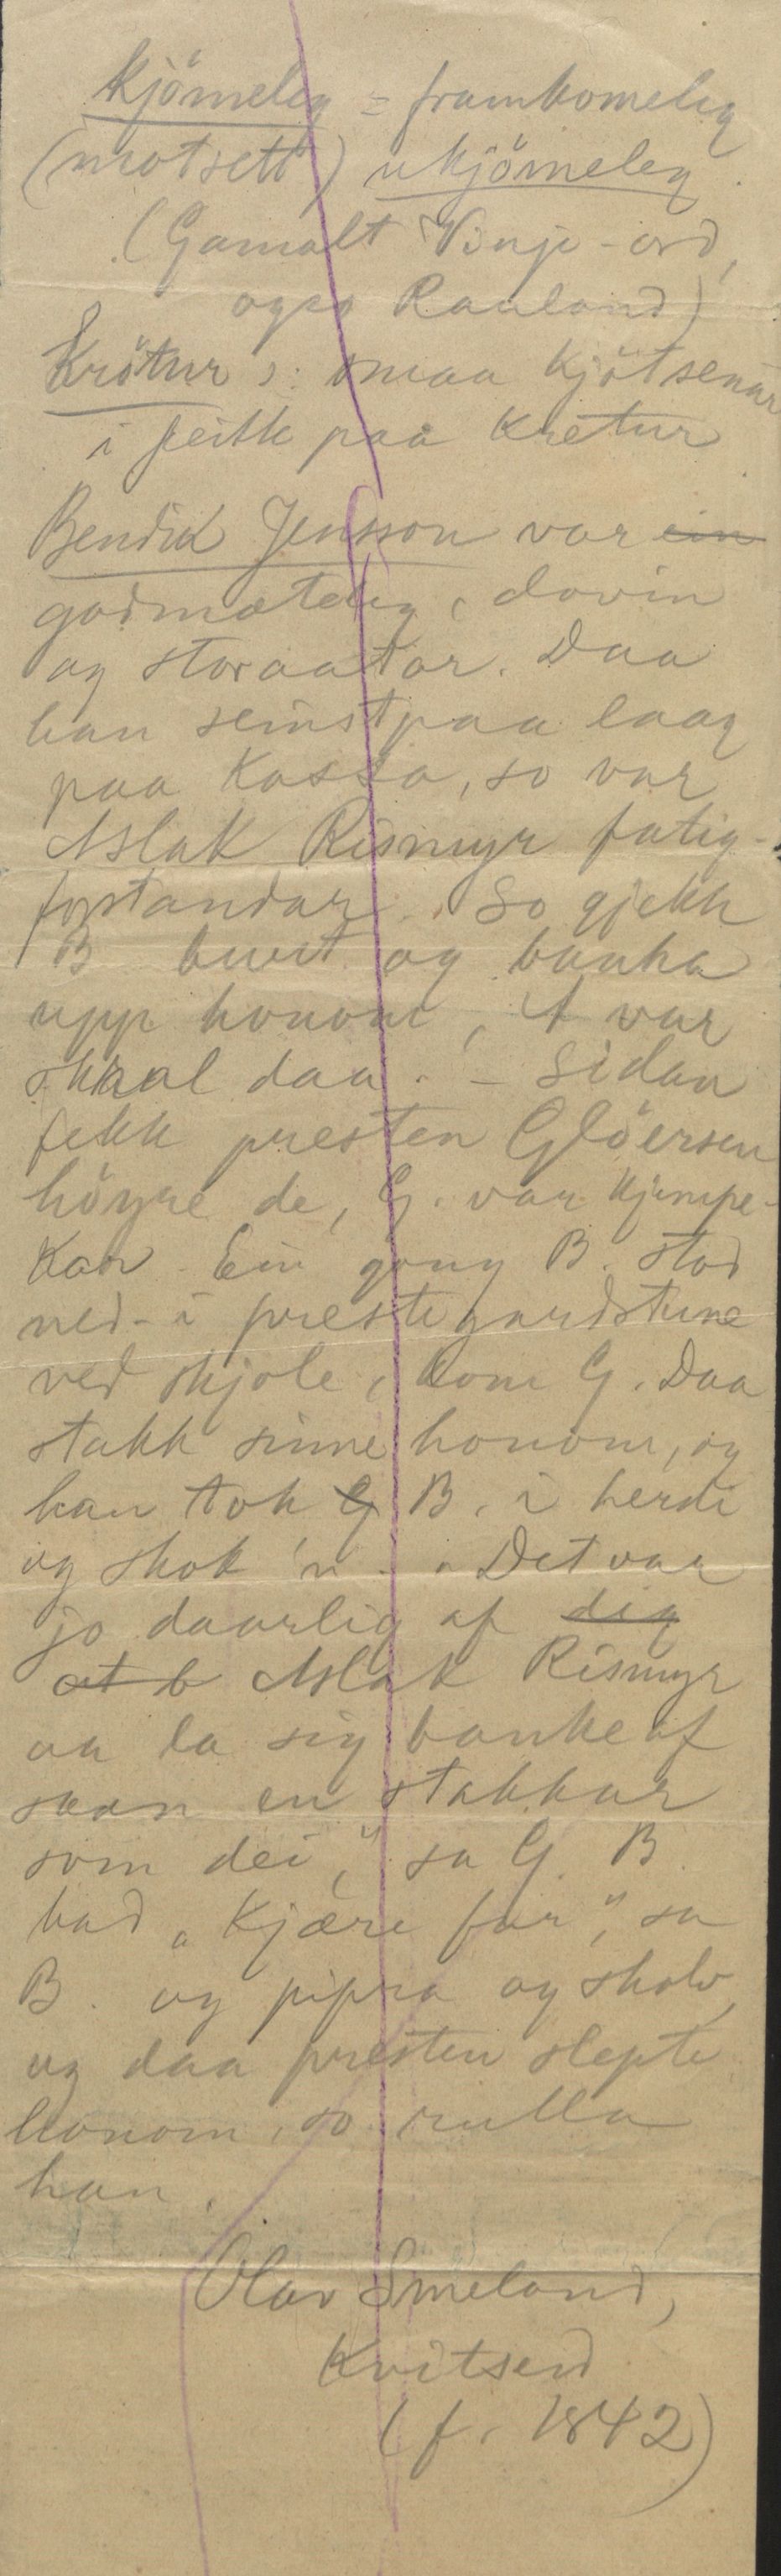 Kjömeleg = framkomeleg
(motsett) ukjömeleg.
(Gamalt Vinje-ord,
ogso Rauland)
Krötur ɔ: smaa kjötsenar
i feitt paa kretur
Bendik Jensson var ein
godmæteleg, dovin
og storaatar. Daa
han seinst paa laag
paa Kassa, so var
Aslak Rismyr fatig-
forstandar. So gjekk
B burt og banka
upp honom, A var
skral daa. – Sidan
fekk presten Glöersen
höyre de, G. var kjempe-
kar. Ein gong B. stod
ned-i prestegardstune
ved skjole, kom G. Daa
stakk sinne honom, og
han tok G B. i herdi
og skok 'n. „Det var
jo daarlig af dig
at b Aslak Rismyr
aa la sig banke af
saan en stakkar
som dei," sa G. B.
bad „Kjære far", sa
B. og pipra og skolv,
og daa presten slepte
honom, so rulla
han.
Olav Smeland,
Kvitseid
(f. 1842)